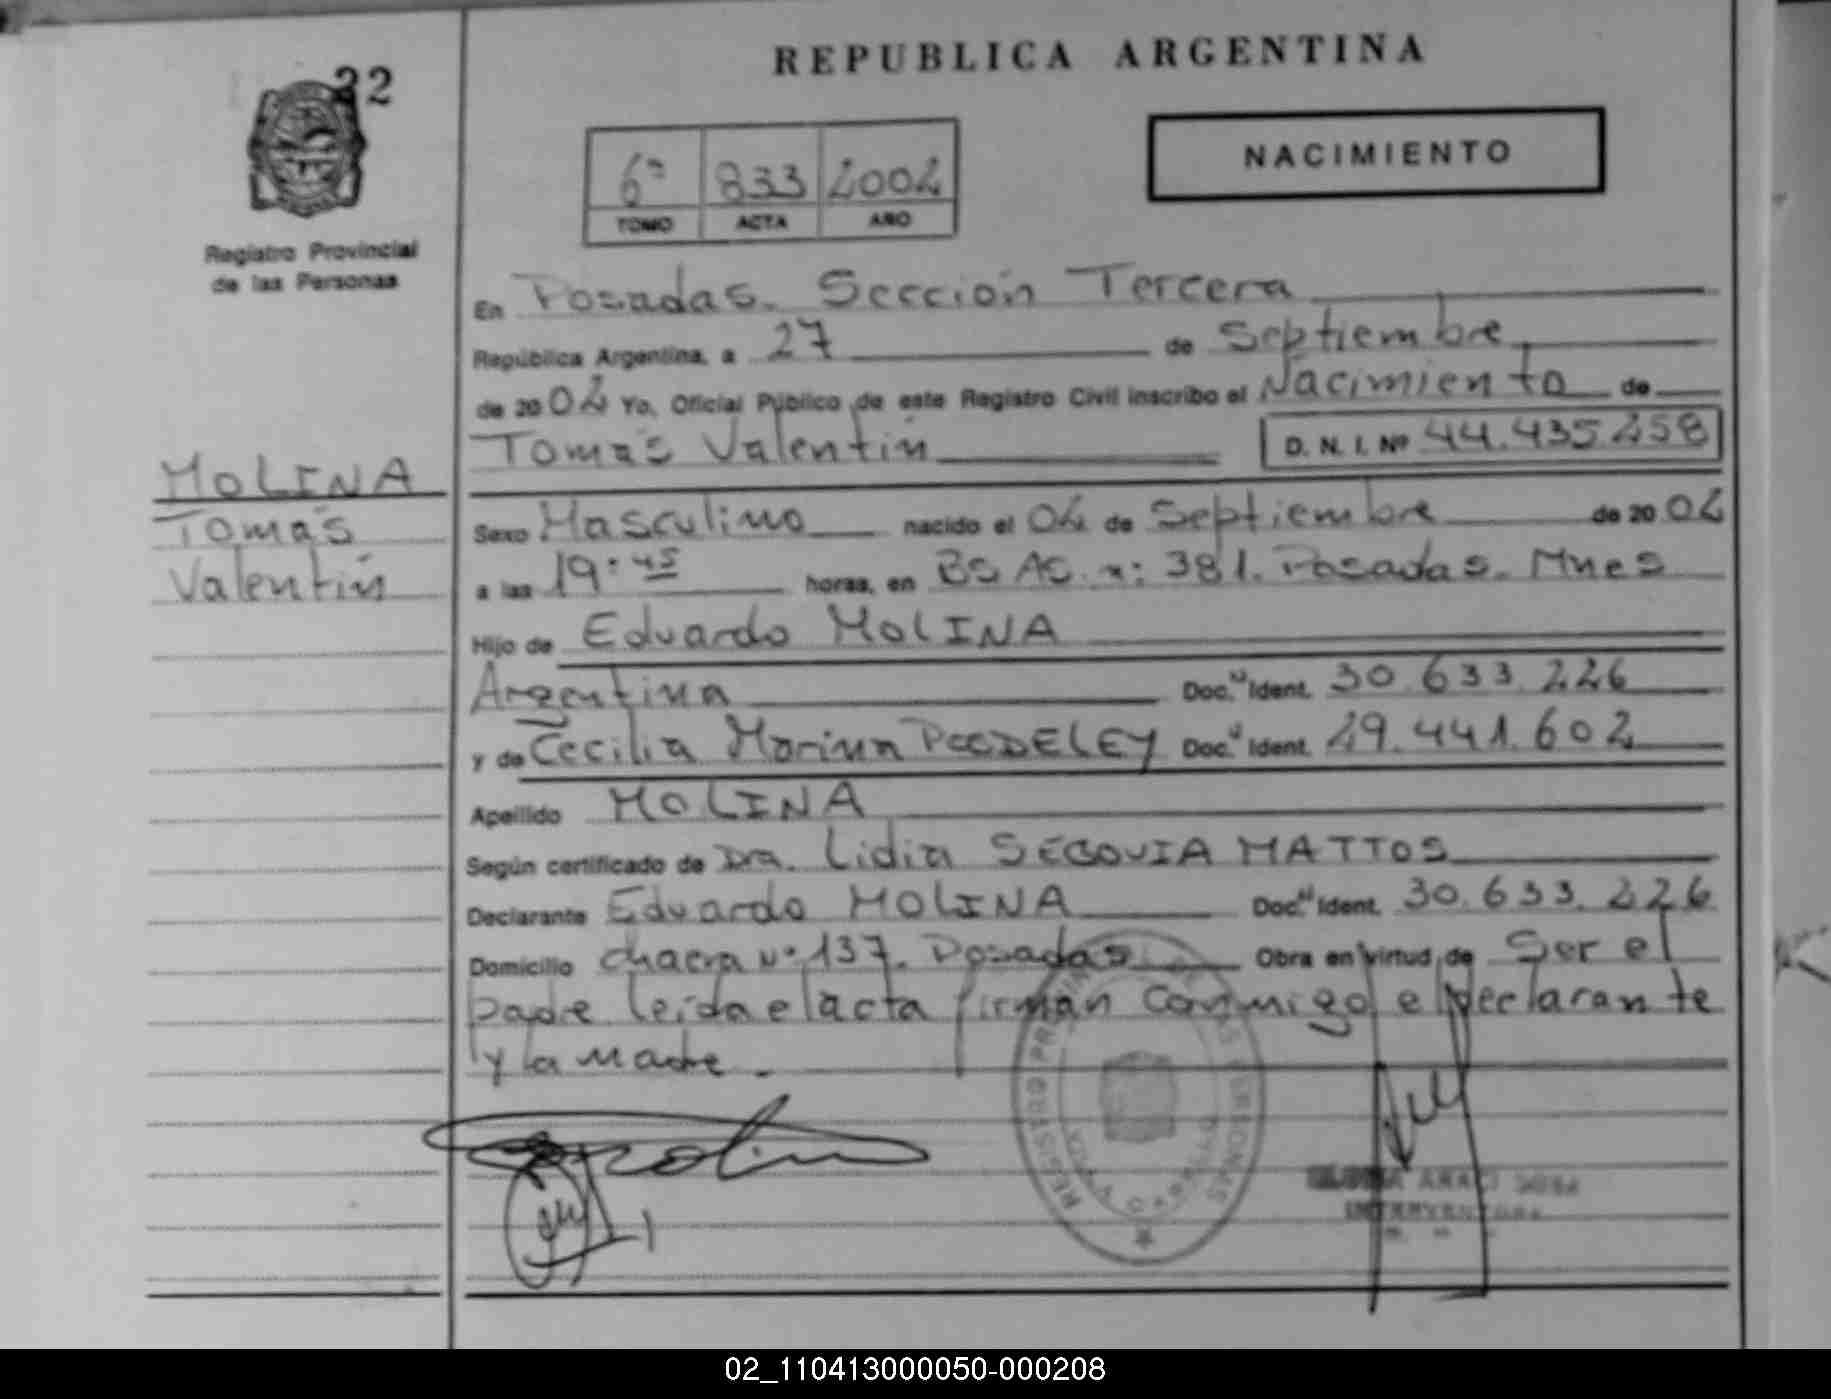 REPUBLICA ARGENTINA
22
NACIMIENTO
6º 833 2002
TOMO ACTA AÑO
Registro Provincial
de las Personas
En Posadas. Sección Tercera
República Argentina, a 27 de Septiembre
de 2002 Yo, Oficial Público de este Registro Civil inscribo el Nacimiento de
Tomás Valentín D. N. I. Nº 44.435.258
MOLINA
Tomás
Valentín
Sexo Masculino nacido el 02 de Septiembre de 2002
a las 19:45 horas, en BS AS. n: 381. Posadas. Mnes
Hijo de Eduardo MOLINA
Argentina Doc. N Ident. 30.633.226
y de Cecilia Marina Doc. N Ident. 29.441.602
Apellido MOLINA
Según certificado de Dra. Lidia SEGOVIA MATTOS
Declarante Eduardo MOLINA Doc. N Ident. 30.633.226
Domicilio chacra Nº 137. Posadas Obra en virtud de Ser el
padre leída el acta firman conmigo el declarante
y la madre.
REGISTRO PROVINCIAL DE LAS PERSONAS
ARACI SOSA
INTERVENTORA
02_110413000050-000208